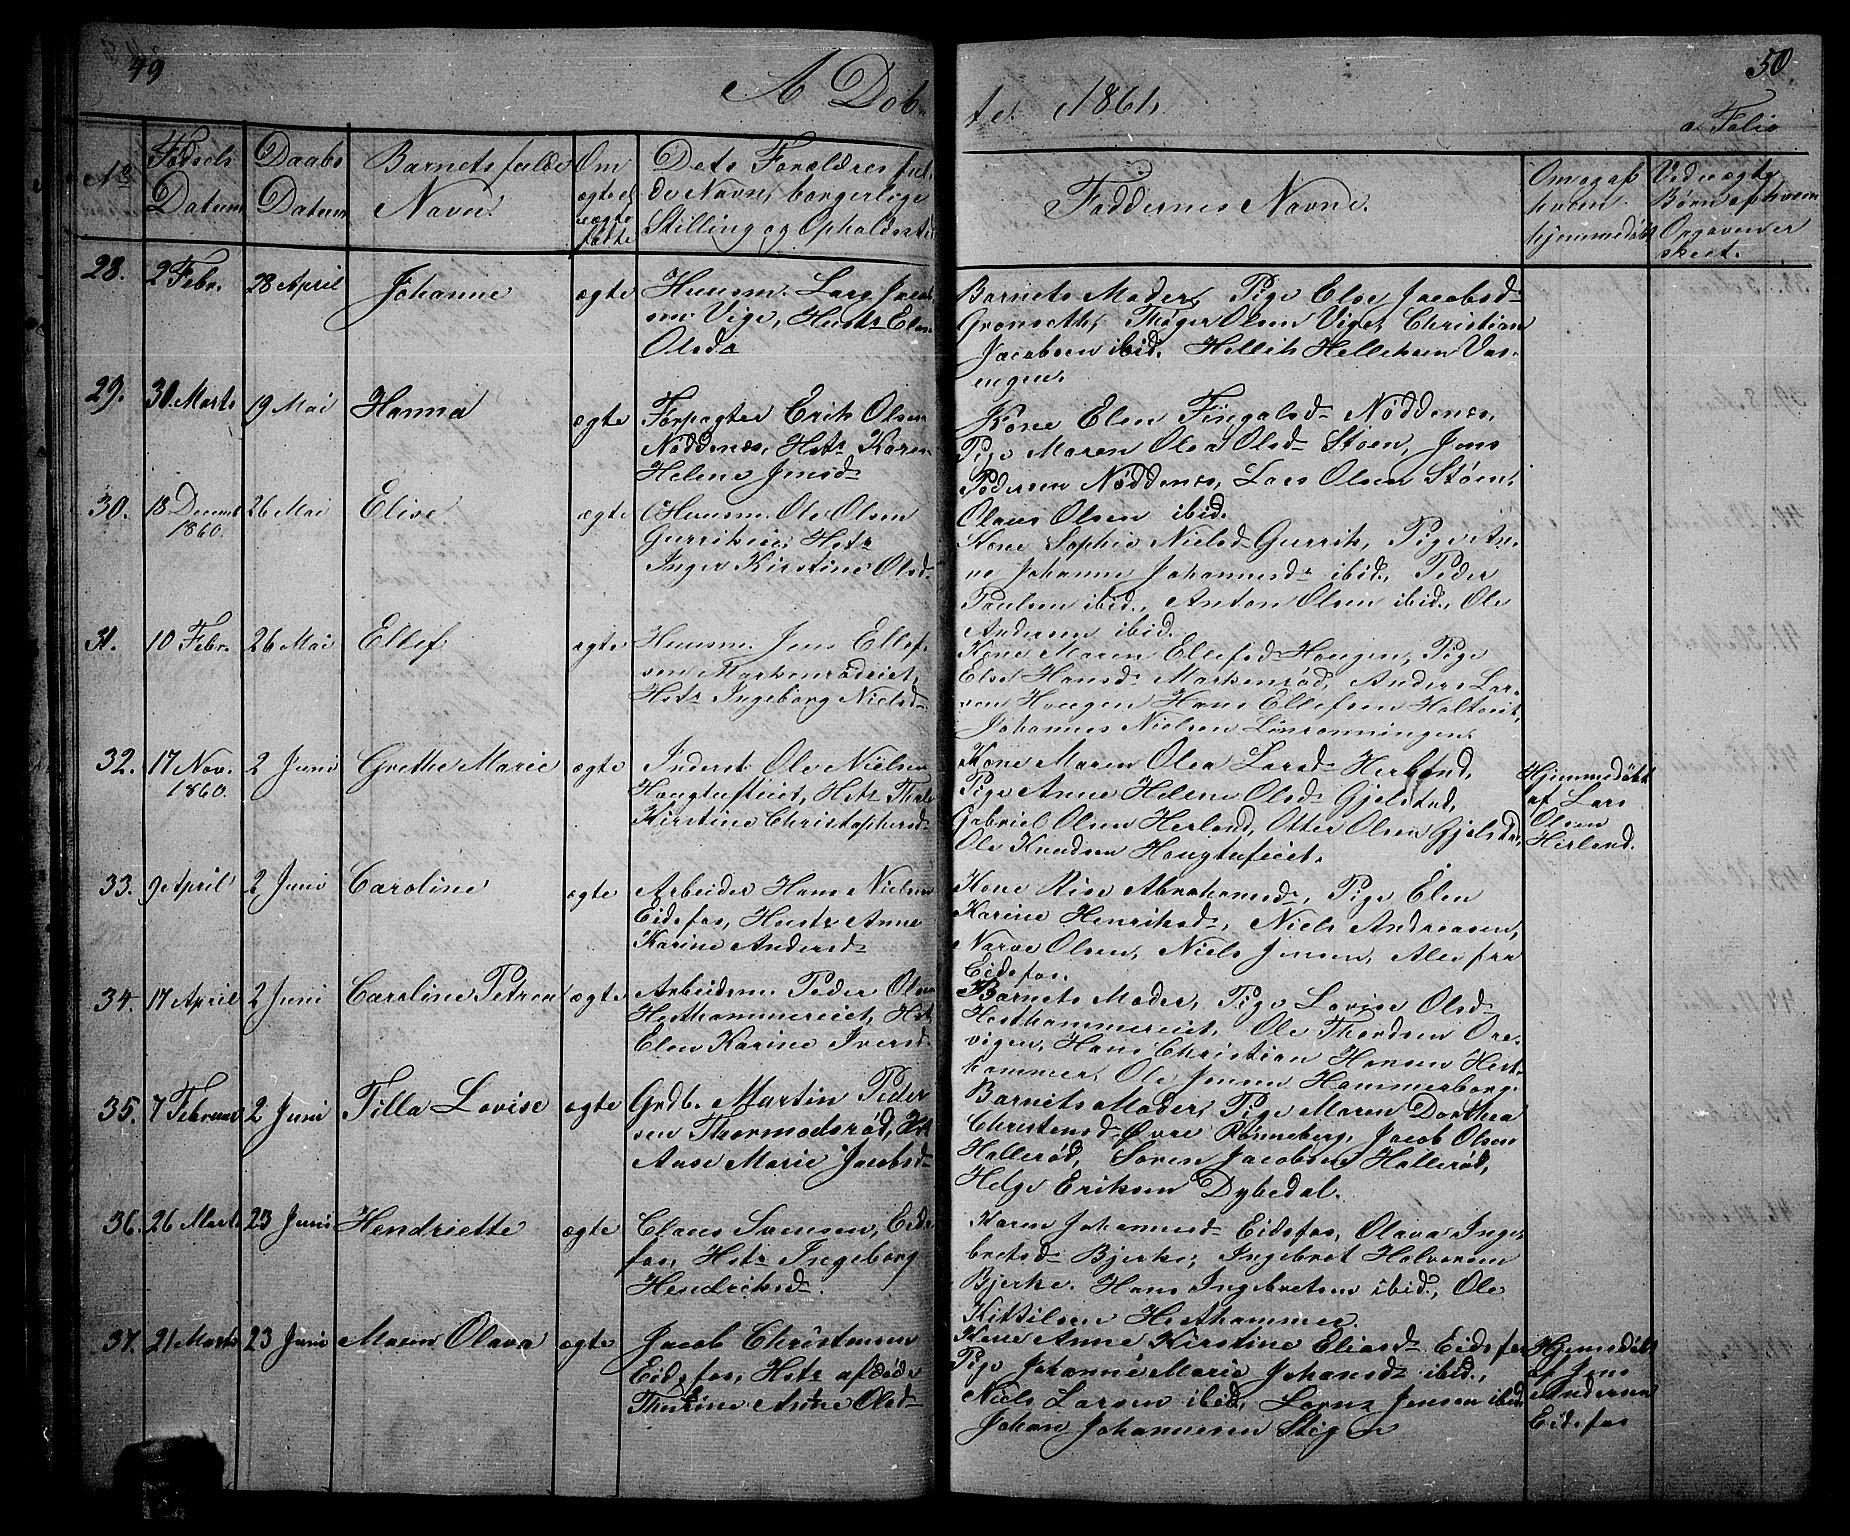 49
50
A Døb-
te. 1861.
a. Folio
No
Fødsels
Datum
Daabs
Datum
Barnets fulde
Navn.
Om
ægte el.
uægte
fødte
Dets Forældres ful-
de Navn, borgerlige
Stilling og Opholdssted
Faddernes Navne.
Om og af
hvem
hjemmedøbt
Ved uægte
Børn af hvem
Opgaven er
skeet.
28.
2 Febr.
28 April
Johanne
ægte
Huusm. Lars Jacob-
sen Vige, Hustr Elen
Olsd.
Barnets Moder, Pige Else Jacobsd.
Grønseth, Thøger Olsen Vige, Christian
Jacobsen ibid. Hellik Helliksen Vas-
engen.
29.
30 Marts
19 Mai
Hanna
ægte
Forpagter Erik Olsen
Nøddenes, Hstr Karen
Helene Jensd.
Kone Elen Fingalsd. Nøddenes,
Pige Maren Olea Olsd. Støen, Jens
Pedersen Nøddenes, Lars Olsen Støen,
Olaus Olsen ibid.
30.
18 Decemb
1860.
26 Mai
Elise
ægte
Huusm. Ole Olsen
Gurrikeie, Hstr
Inger Kirstine Olsd.
Kone Sophie Nielsd. Gurrik, Pige An-
ne Johanne Johannesd. ibid., Peder
Paulsen ibid., Anton Olsen ibid., Ole
Andersen ibid.
31.
10 Febr.
26 Mai
Ellef
ægte
Huusm. Jens Ellef-
sen Markenrødeiet,
Hstr Ingeborg Nielsd.
Kone Maren Ellefsd. Haugen, Pige
Else Hansd. Markenrød, Anders Lar-
sen Haugen Hans Ellefsen Holteiet,
Johannes Nielsen Lønrønningen.
32.
17 Nov.
1860
2 Juni
Grethe Marie
ægte
Inderst Ole Nielsen
Haugtufteiet, Hstr Thale
Kirstine Christophersd.
Kone Maren Olea Larsd. Herland,
Pige Anne Helene Olsd. Gjelstad,
Gabriel Olsen Herland, Otter Olsen Gjelstad,
Ole Knudsen Haugtufteiet.
Hjemmedøbt
af Lars
Olsen
Herland.
33.
9 April
2 Juni
Caroline
ægte
Arbeider Hans Nielsen
Eidsfos, Hustr Anne
Karine Andersd.
Kone Rise Abrahamsd., Pige Elen
Karine Henriksd., Niels Andreasen,
Narve Olsen, Niels Jensen, Alle fra
Eidsfos.
34.
17 April
2 Juni
Caroline Petrea
ægte
Arbeidsm. Peder Olsen
Hesthammereiet, Hstr
Elen Karine Iversd.
Barnets Moder, Pige Lovise Olsd.
Hesthammereiet, Ole Thordsen Ore-
vigen, Hans Christian Hansen Hest-
hammer, Ole Jensen Hammerborg
35.
7 Februar
2 Juni
Tilla Lovise
ægte
Grdb. Martin Peder-
sen Thormodsrød, Hstr
Aase Marie Jacobsd.
Barnets Moder, Pige Maren Dorthea
Christensd. Øvre Rønneberg, Jacob Olsen
Hallerød, Søren Jacobsen Hallerød,
Helge Eriksen Dybedal.
36.
26 Marts
23 Juni
Hendriette
ægte
Claus Svensen, Eids-
fos, Hstr Ingeborg
Hendriksd.
Karen Johannesd. Eidsfos, Olava Inge-
bretsd. Bjerke, Ingebret Halvorsen
Bjerke. Hans Ingebretsen ibid., Ole
Kittilsen Hesthammer.
37.
21 Marts
23 Juni
Maren Olava
ægte
Jacob Christensen
Eidsfos, Hstr afdøde
Thurine Anne Olsd.
Kone Anne Kirstine Eliasd. Eidsfos
Pige Johanne Marie Johansd. ibid.,
Niels Larsen ibid, Lornz Jensen ibid
Johan Johannesen Stigen
Hjemmedøbt
af Jens
Andersen
Eidsfos